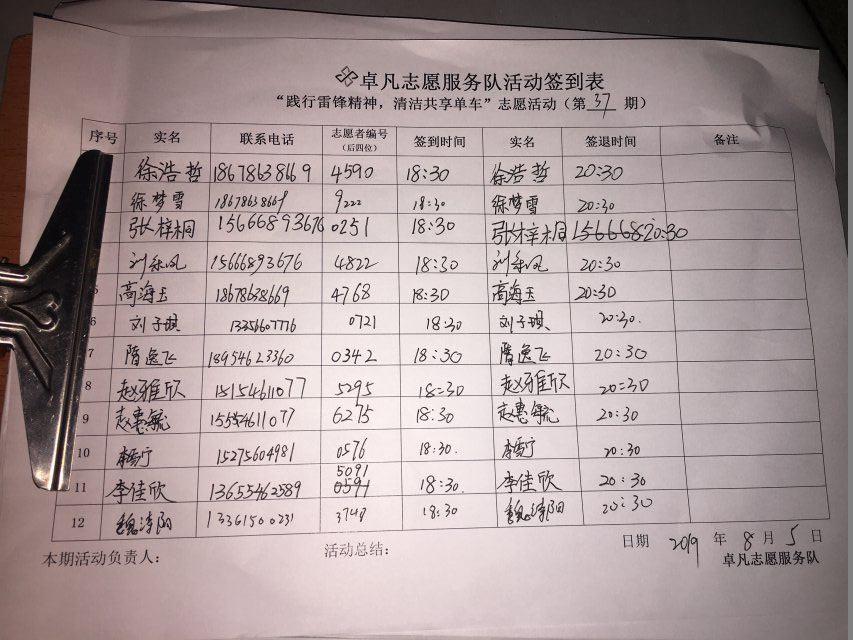 卓凡志愿服务队活动签到表
“践行雷锋精神，清洁共享单车”志愿活动（第 37 期）
序号 实名 联系电话 志愿者编号（后四位） 签到时间 实名 签退时间 备注
徐浩哲 18678638669 4590 18:30 徐浩哲 20:30
徐梦雪 18678638669 9222 18:30 徐梦雪 20:30
张梓桐 15666893676 0251 18:30 张梓桐 1566682 20:30
15666893676 4822 18:30 20:30
5 高海玉 18678638669 4768 18:30 高海玉 20:30
6 刘子琪 13356607776 0721 18:30 刘子琪 20:30.
7 隋逸飞 18954623360 0342 18:30 隋逸飞 20:30
8 赵雅欣 15154611077 5295 18:30 赵雅欣 20:30
9 赵惠毓 15554611077 6275 18:30 赵惠毓 20:30
10 15275604981 0576 18:30. 20:30
11 李佳欣 13655462589 5091 0591 18:30. 李佳欣 20:30
12 魏涛阳 13361500231 3748 18:30 魏涛阳 20:30
日期 2019 年 8 月 5 日
本期活动负责人： 活动总结： 卓凡志愿服务队